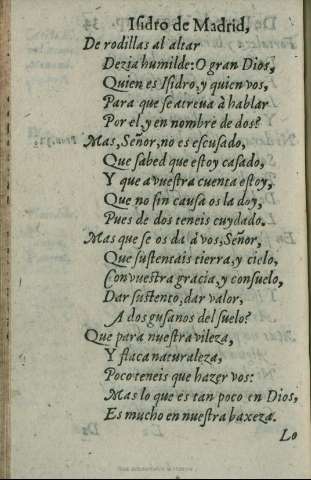 Isidro de Madrid,
De rodillas al altar
Dezia humilde: O gran Dios,
Quien es Isidro, y quien vos,
Para que se atreua à hablar
Por el, y en nombre de dos?
Mas, Señor, no es escusado,
Que sabed que estoy casado,
Y que a vuestra cuenta estoy,
Que no sin causa os la doy,
Pues de dos teneis cuydado.
Mas que se os da à vos, Señor,
Que sustentais tierra, y cielo,
Con vuestra gracia, y consuelo,
Dar sustento, dar valor,
A dos gusanos del suelo?
Que para nuestra vileza,
Y flaca naturaleza,
Poco teneis que hazer vos:
Mas lo que es tan poco en Dios,
Es mucho en nuestra baxeza.
Lo